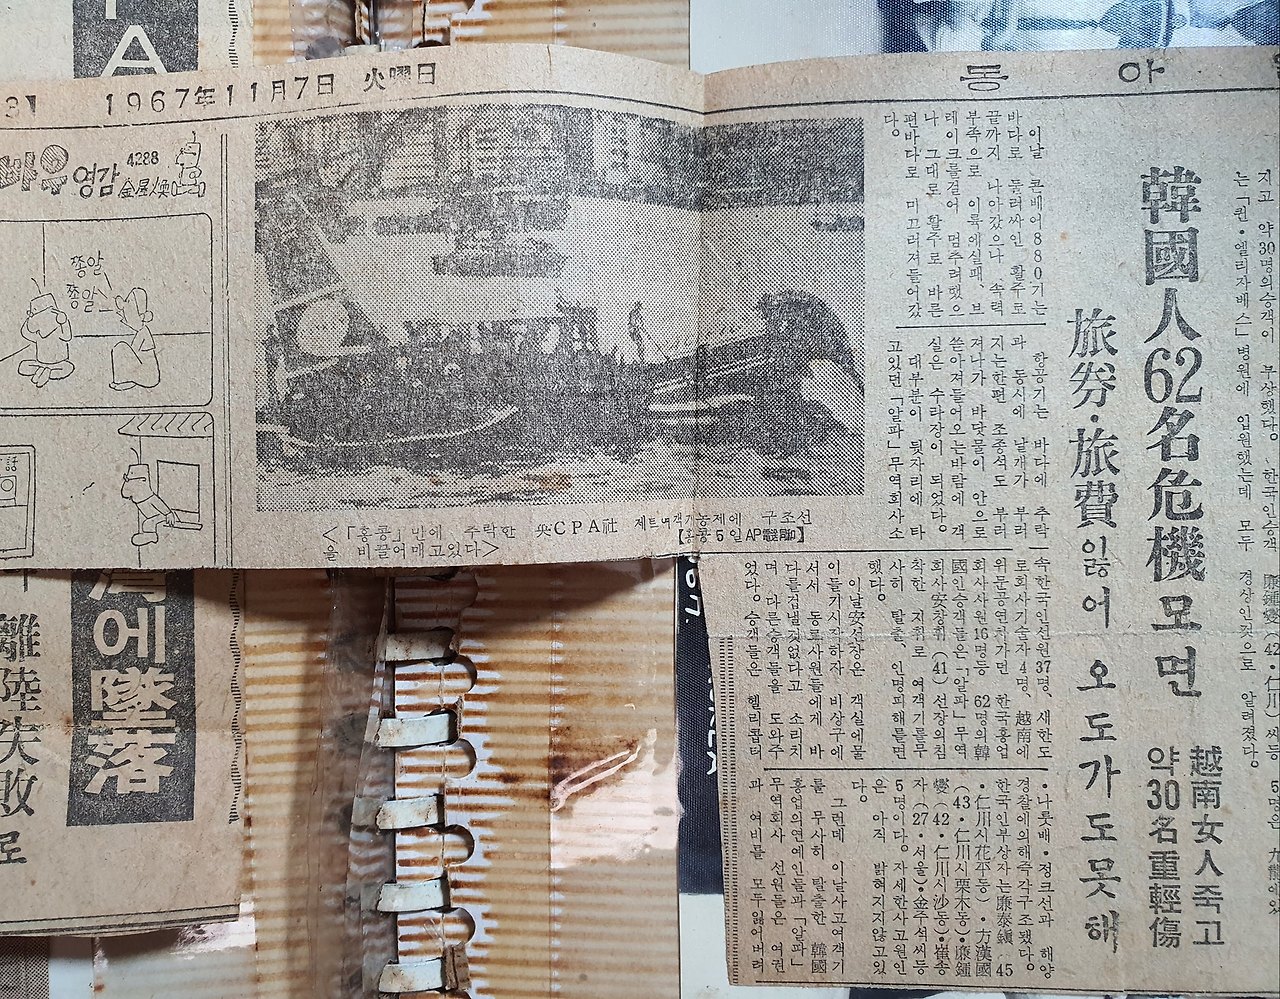 1967年11月7日 火曜日
동아
바우영감
4288
쫑알
쫑알
<「홍콩」만에 추락한 英CPA社 제트여객기농제에 구조선
을 비끌어매고있다>
【홍콩5일AP電送】
韓國人62名危機모면
旅券·旅費잃어 오도가도못해
越南女人죽고
약30名重輕傷
지고 약30명의승객이 부상했다. 한국인승객
는「퀸·엘리자베스」병원에 입원했는데 모두 경상인것으로 알려졌다.
이날 콘베어880기는
바다로 둘러싸인 활주로
끝까지 나아갔으나 속력
부족으로 이륙에실패, 브
레이크를걸어 멈추려했으
나 그대로 활주로 바른
편바다로 미끄러져들어갔
다.
항공기는 바다에 추락
과 동시에 날개가 부러
지는한편 조종석도 부러
져나가 바닷물이 안으로
쏟아져들어오는바람에 객
실은 수라장이 되었다.
대부분이 뒷자리에 타
고있던「알파」무역회사소
속한국인선원37명, 새한도
로회사기술자4명, 越南에
위문공연차가던 한국흥업
회사사원16명등 62명의韓
國인승객들은「알파」무역
회사安창휘(41)선장의침
착한 지휘로 여객기를무
사히 탈출, 인명피해를면
했다.
이날安선장은 객실에물
이들기시작하자 비상구에
서서 동료사원들에게 바
다를겁낼것없다고 소리치
며 다른승객들을 도와주
었다. 승객들은 헬리콥터
·나룻배·정크선과 해양
경찰에의해즉각구조됐다.
한국인부상자는廉泰鎭(45
·仁川시花平동)·方漢國
(43·仁川시栗木동)·廉鍾
燮(42·仁川시沙동)·崔송
자(27·서울)·金주석씨등
5명이다. 자세한사고원인
은 아직 밝혀지지않고있
다.
그런데 이날사고여객기
를 무사히 탈출한 韓國
흥업의연예인들과「알파」
무역회사 선원들은 여권
과 여비를 모두잃어버려
에墜落
離陸失敗로